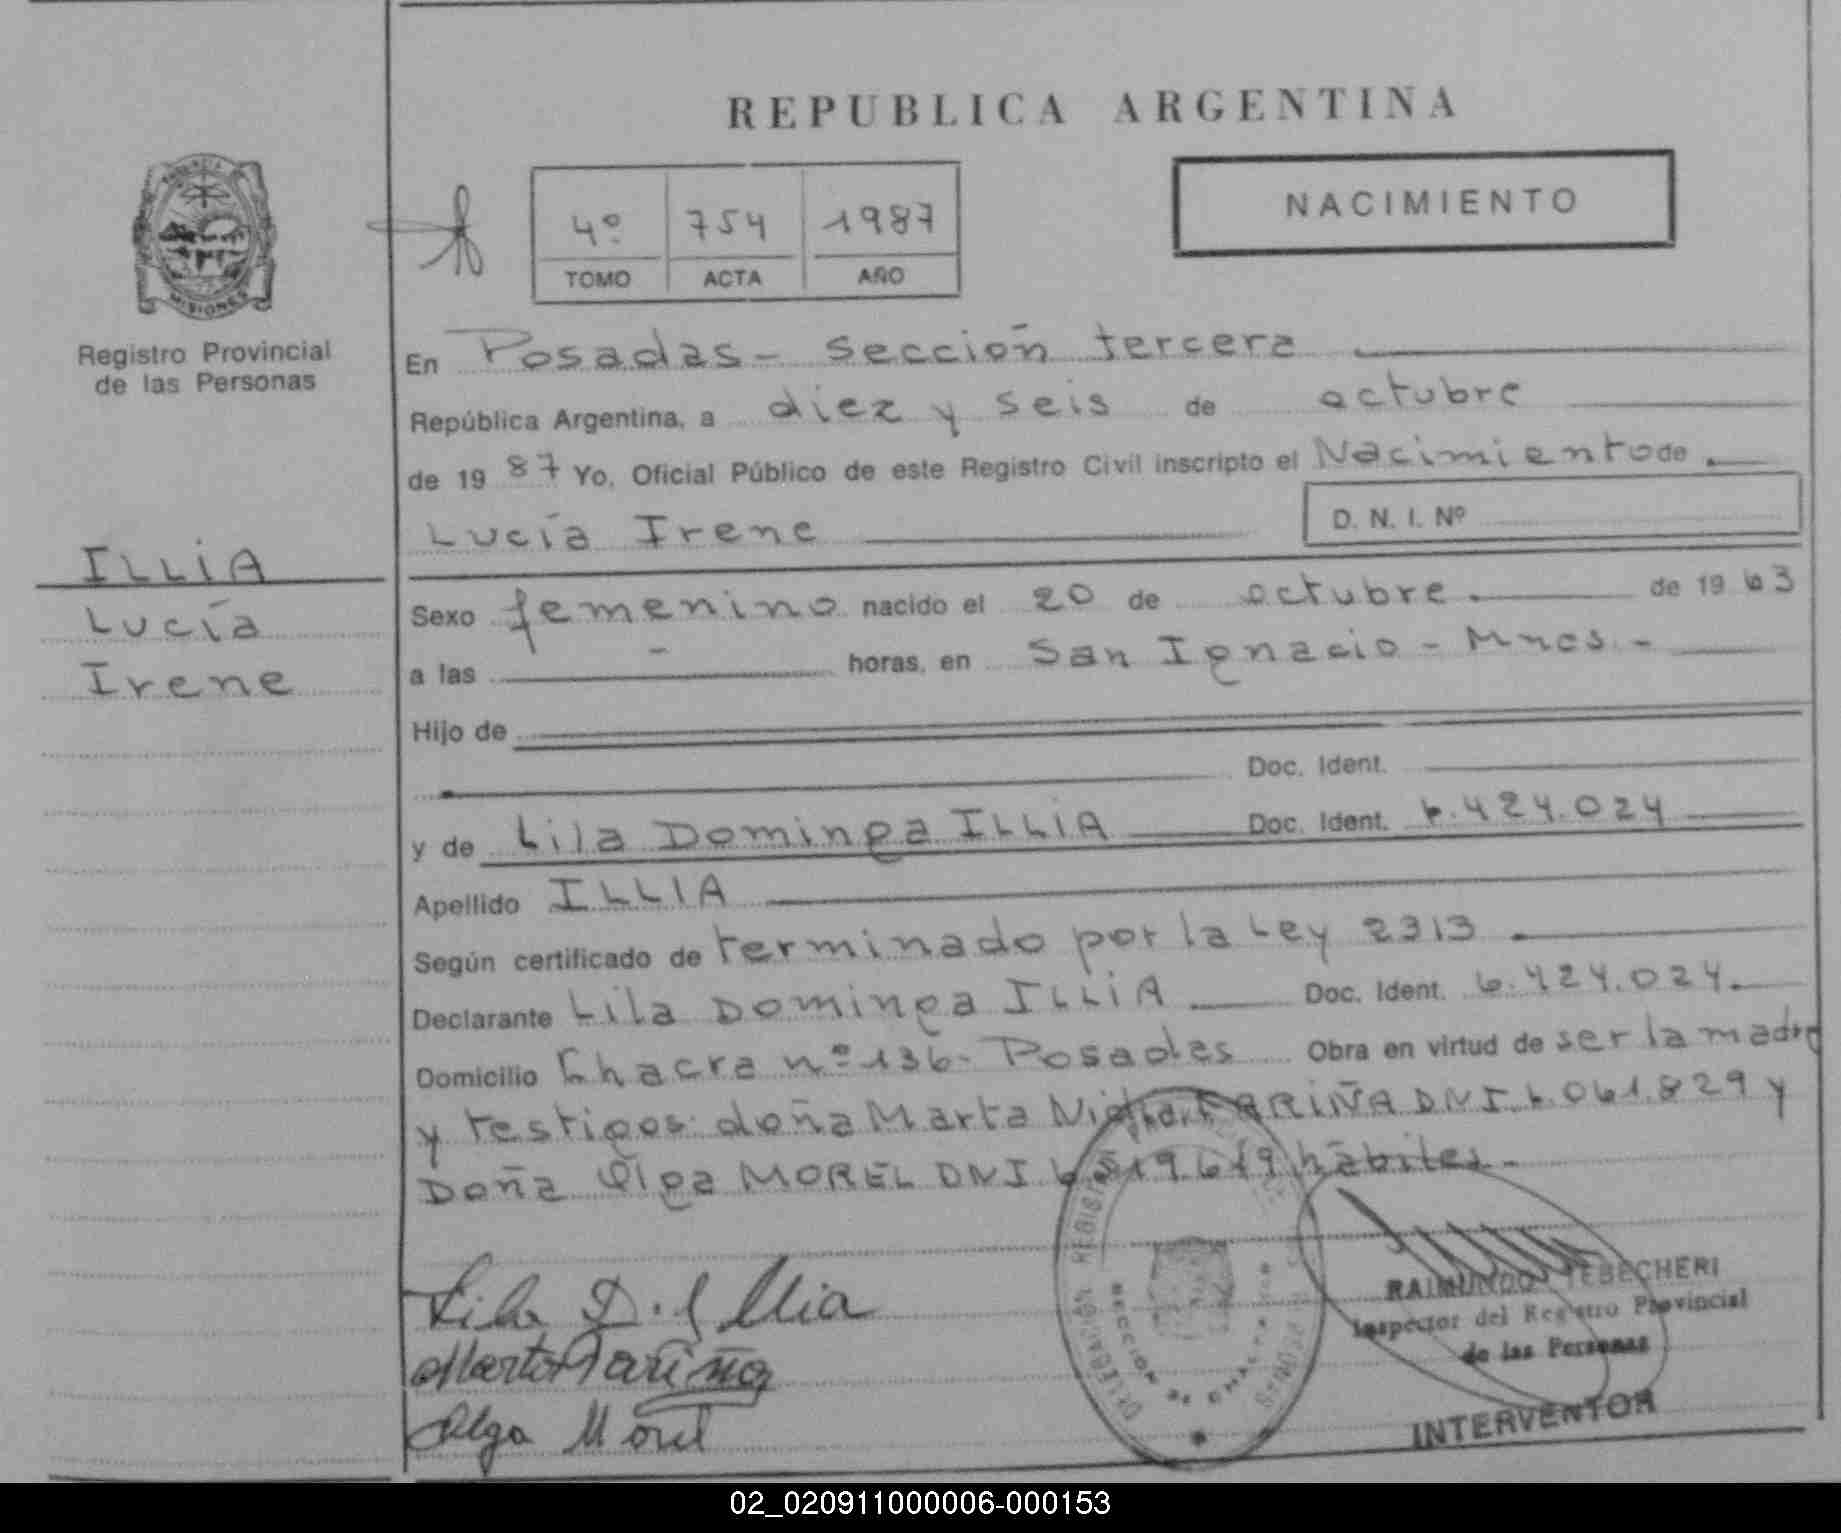 REPUBLICA ARGENTINA
NACIMIENTO
4º 754 1987
TOMO ACTA AÑO
MISIONES
Registro Provincial
de las Personas
ILLIA
Lucía
Irene
En Posadas - sección tercera
República Argentina, a diez y seis de octubre
de 1987 Yo, Oficial Público de este Registro Civil inscripto el Nacimiento de
Lucía Irene
D. N. I. Nº
Sexo femenino nacido el 20 de octubre. de 1963
a las - horas, en San Ignacio - Mnes. -
Hijo de
Doc. Ident.
y de Lila Dominga ILLIA Doc. Ident. 6.424.024
Apellido ILLIA
Según certificado de terminado por la Ley 2313
Declarante Lila Dominga ILLIA Doc. Ident. 6.424.024.
Domicilio Chacra nº 136- Posadas Obra en virtud de ser la madre
y testigos: doña Marta FARIÑA DNI 6.061.829 y
Doña Olga MOREL DNI hábiles.-
Lila D. Illia
Marta Fariña
Olga Morel
RAIMUNDO TEBECHERI
Inspector del Registro Provincial
de las Personas
INTERVENTOR
02_020911000006-000153